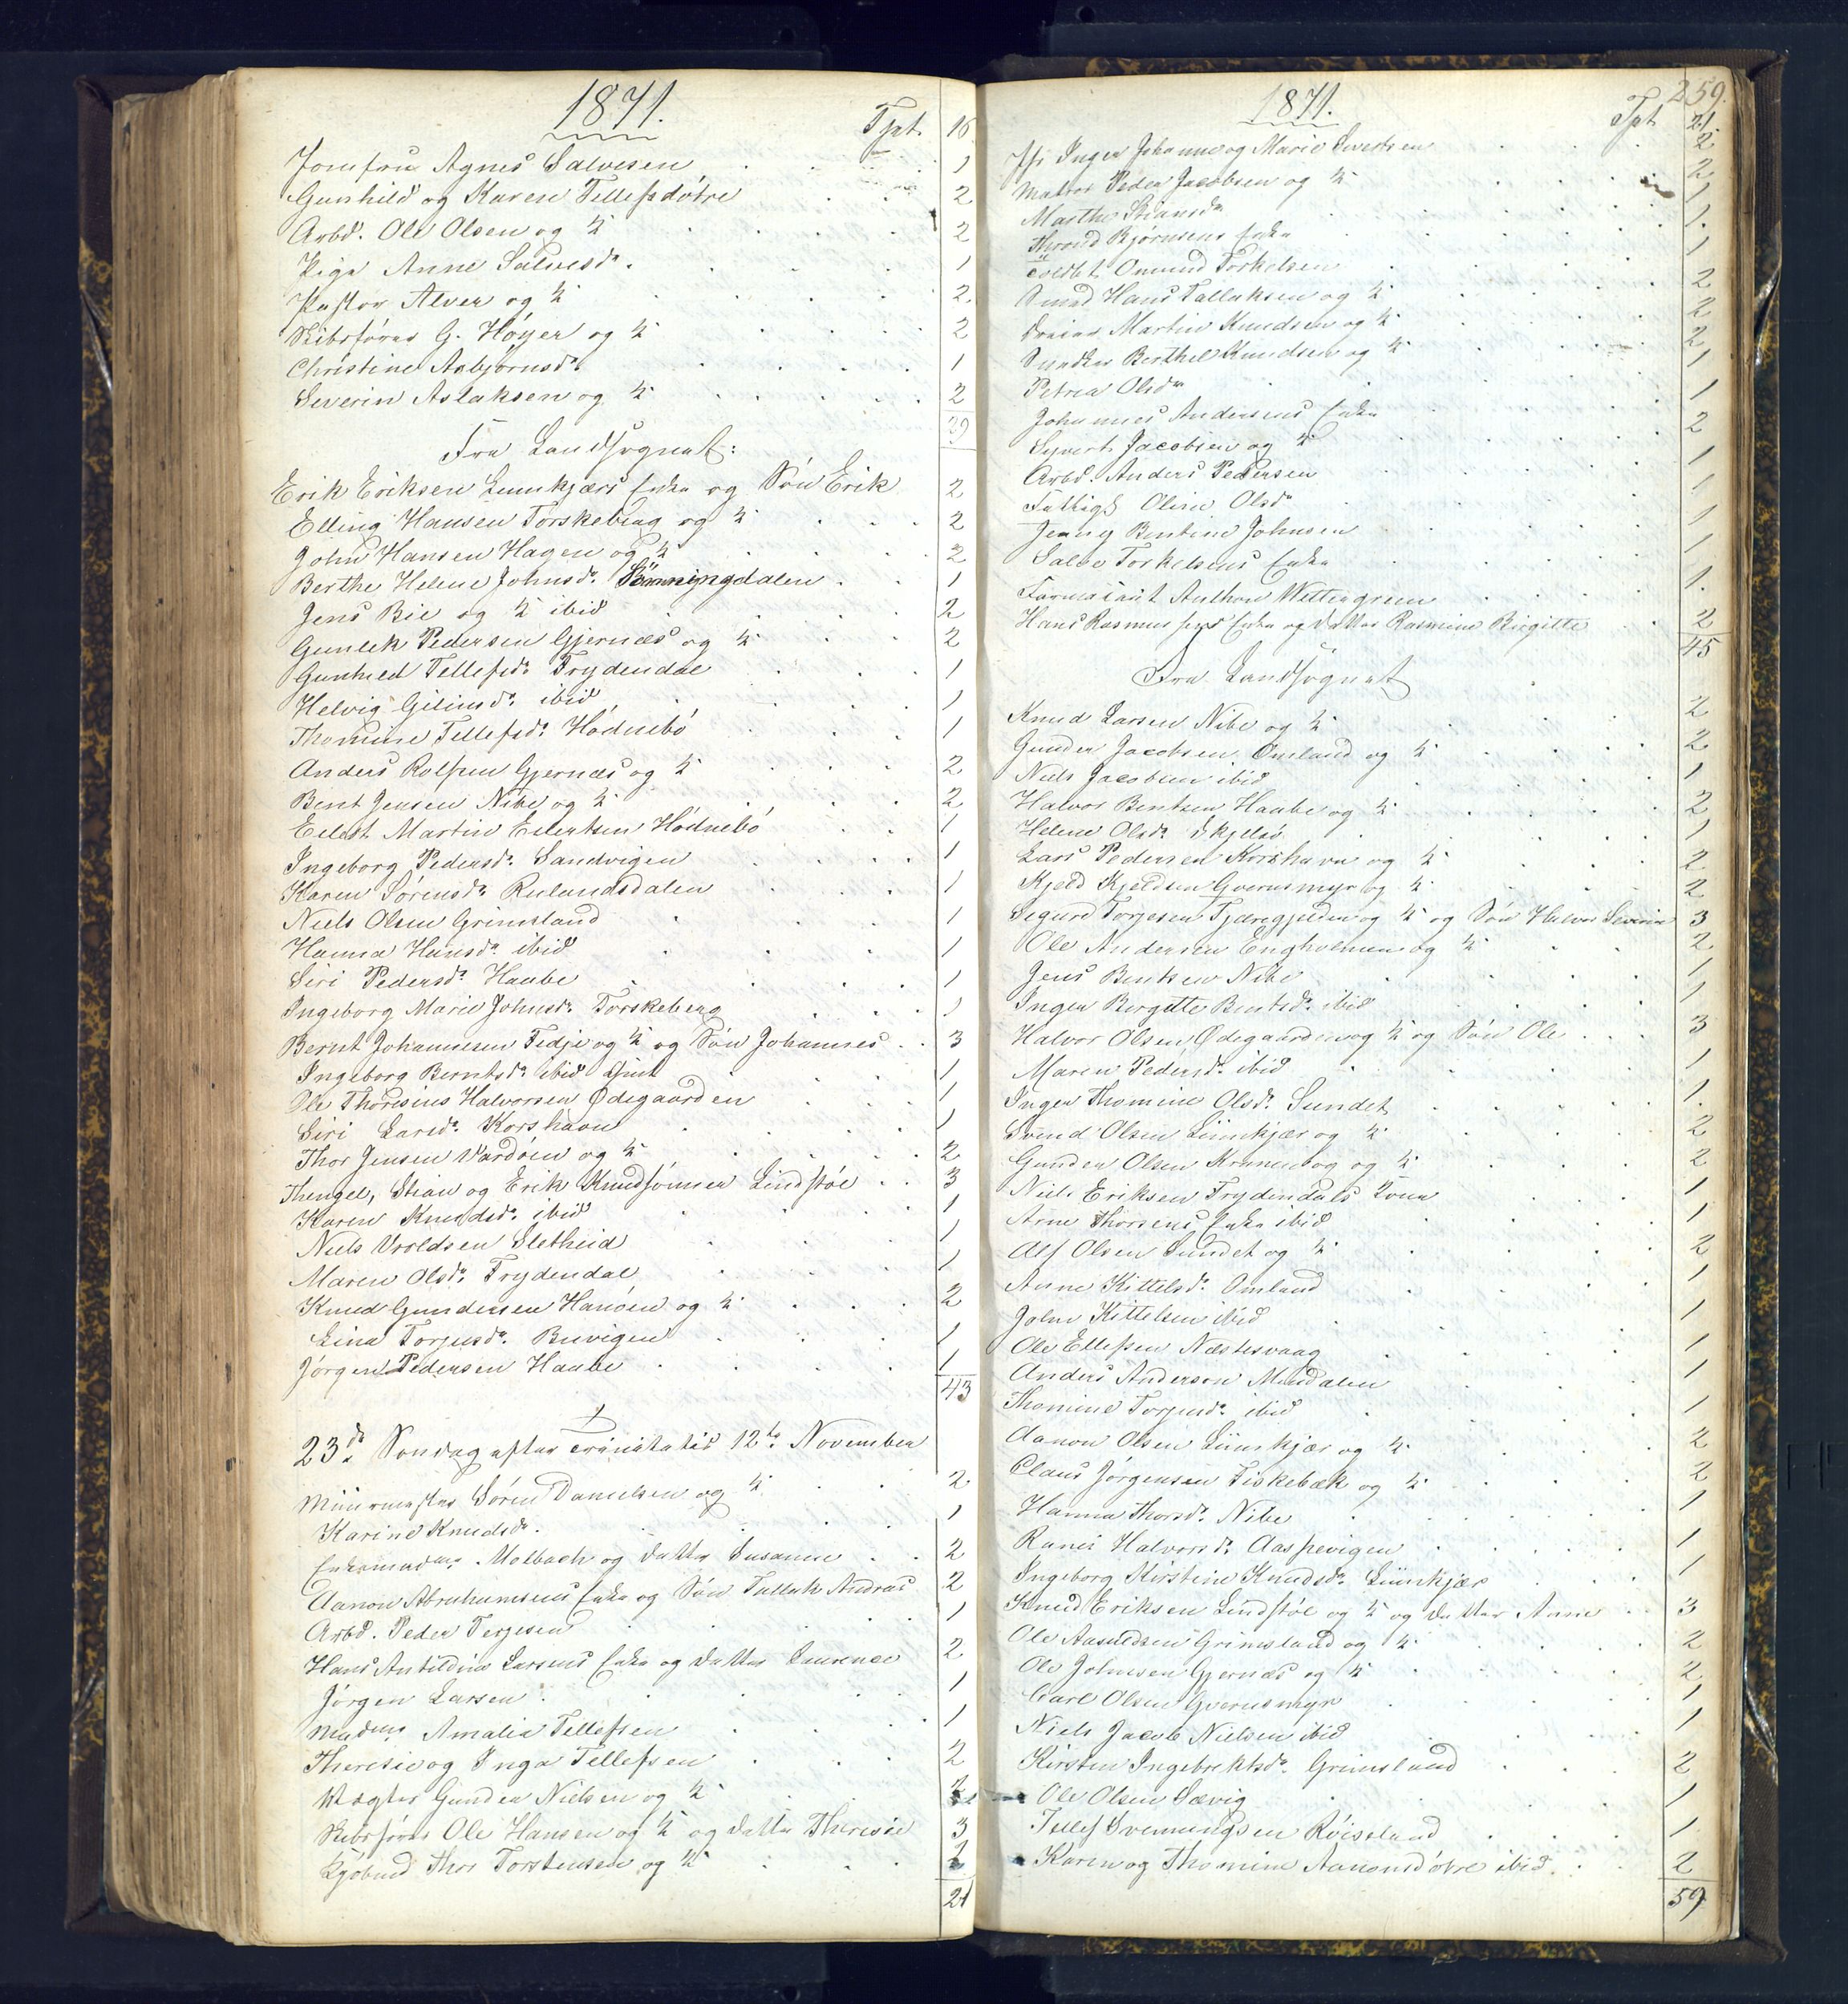 1871.
Tpt. 16
Jomfru Agnes Salvesen 1
Gunhild og Karen Tellefsdøtre 2
Arbd. Ole Olsen og ½ 2
Pige Anne Salvesdr. 1
Pastor Alver og ½ 2
Skibsfører G. Höyer og ½ 2
Christine Asbjørnsdr. 1
Severin Aslaksen og ½ 2
39
Fra Landsognet:
Erik Eriksen Lunkjærs Enke og Søn Erik 2
Elling Hansen Torskeberg og ½ 2
John Hansen Hagen og ½ 2
Berthe Helene Johnsdr. 1
Jens Bie og ½ ibid 2
Gunlek Pedersen Gjernæs og ½ 2
Gunhild Tellefsdr. Frydendal 1
Helvig ibid 1
Thomine Tellefsdr. Hødnebø 1
Anders Rolfsen Gjernæs og ½ 2
Bent Jensen Nibe og ½ 2
Eilert Martin Eilertsen Hødnebø 1
Ingeborg Pedersdr. Sandvigen 1
Karen Sørensdr. 1
Niels Olsen Grimsland 1
Hanna Hansdr. ibid 1
Siri Pedersdr. Haabe 1
Ingeborg Marie Johnsdr. Torskeberg 1
Bernt Johannesen Tedje og ½ og Søn Johannes 3
Ingeborg Berntsdr. ibid 1
Ole Thorisius Halvorsen Ødegaarden 1
Siri Larsdr. Korshavn 1
Thor Jensen Vardøen og ½ 2
Thengel, Stian og Erik Knudsønner Lindstøl 3
Karen Knudsdr. ibid 1
Niels Vroldsen Sletheid 1
Maren Olsdr. Frydendal 1
Knud Gundersen Hanøen og ½ 2
Lina Torjusdr. Buvigen 1
Jørgen Pedersen Haabe 1
43
23de Søndag efter Trinitatis 12te November
Muurmester Søren Danielsen og ½ 2
Karine Knudsdr. 1
Enkemadme. Molbach og Datter Susanne 2
Aanon Abrahamsens Enke og Søn Tallak Andreas 2
Arbd. Peder Terjesen 1
Hans Larsens Enke og Datter Laurence 2
Jørgen Larsen 1
Madme. Amalia Tellefsen 1
Theresie og Inga Tellefsen 2
Vægter Gunder Nielsen og ½ 2
Skibsfører Ole Hansen og ½ og Datter Theresie 3
Thor Torstensen og ½ 2
21
259.
1871.
Tpt. 21.
Jfr Inger Johanne og Marie Sivertsen 2
Matros Peder Jacobsen og ½ 2
Marthe Stiansdr. 1
Thrond Bjørnsens Enke 1.
Omund Torkelsen 1
Smed Hans Tallaksen og ½ 2
Dreier Martin Knudsen og ½ 2
Snedker Berthel Knudsen og ½ 2
Petrea Olsdr 1
Johannes Andersens Enke 1
Syvert Jacobsen og ½ 2
Arbd. Anders Pedersen 1
Fattigl. Oline Olsdr 1
Jenny Bentine Johnsen 1
Salve Torkelsens Enke 1
Farmaceut Anthon Wettergreen 1.
Hans Rasmussens Enke og Datter Rasmine Birgitte 2
45
Fra Landsognet
Knud Larsen Nibe og ½ 2
Gunder Jacobsen Omland og ½ 2
Niels Jacobsen ibid 1
Halvor Bentsen Haabe og ½ 2
Helene Olsdr. Skjelsø 1
Lars Pedersen Korshavn og ½ 2
Kjeld Kjeldsen Gvernsmyr og ½ 2
Sigurd Torjesen Tjæregjelden og ½ og Søn Halvor Severin 3
Ole Andersen Engholmen og ½ 2
Jens Bentsen Nibe 1
Inger Birgitte Bentsdr. ibid 1
Halvor Olsen Ødegaarden og ½ og Søn Ole 3
Maren Pedersdr. ibid 1
Inger Thomine Olsdr. Sundet 1.
Svend Olsen Lunkjær og ½ 2
Gunder Olsen og ½ 2
Niels Eriksen Frydendals Kone 1
Arne Thorsens Enke ibid 1
Alf Olsen Sundet og ½ 2
Anne Kittelsdr. Omland 1
John Kittelsen ibid 1
Ole Ellefsen Næstesvaag 1
Anders Andersen Mosdalen 1
Thomine Torjusdr. ibid 1
Aanon Olsen Lunkjær og ½ 2
Claus Jørgensen Fiskebæk og ½ 2
Hanna Thorsdr. Nibe 1
Ranei Halvorsdr. Aaspevigen 1
Ingeborg Kirstine Knudsdr. Lunkjær 1
Knud Eriksen Lindstøl og ½ og Datter Anne 3
Ole Aasuldsen Grimsland og ½ 2
Ole Johnsen Gjernæs og ½ 2
Carl Olsen Gvernsmyr 1
Niels Jacob Nielsen ibid 1
Kirsten Ingebrektsdr. Grimsland 2
Ole Olsen Sævig 1
Tellef Svenningsen Røisland 1
Karen og Thomine Aanonsdøtre ibid. 2
59